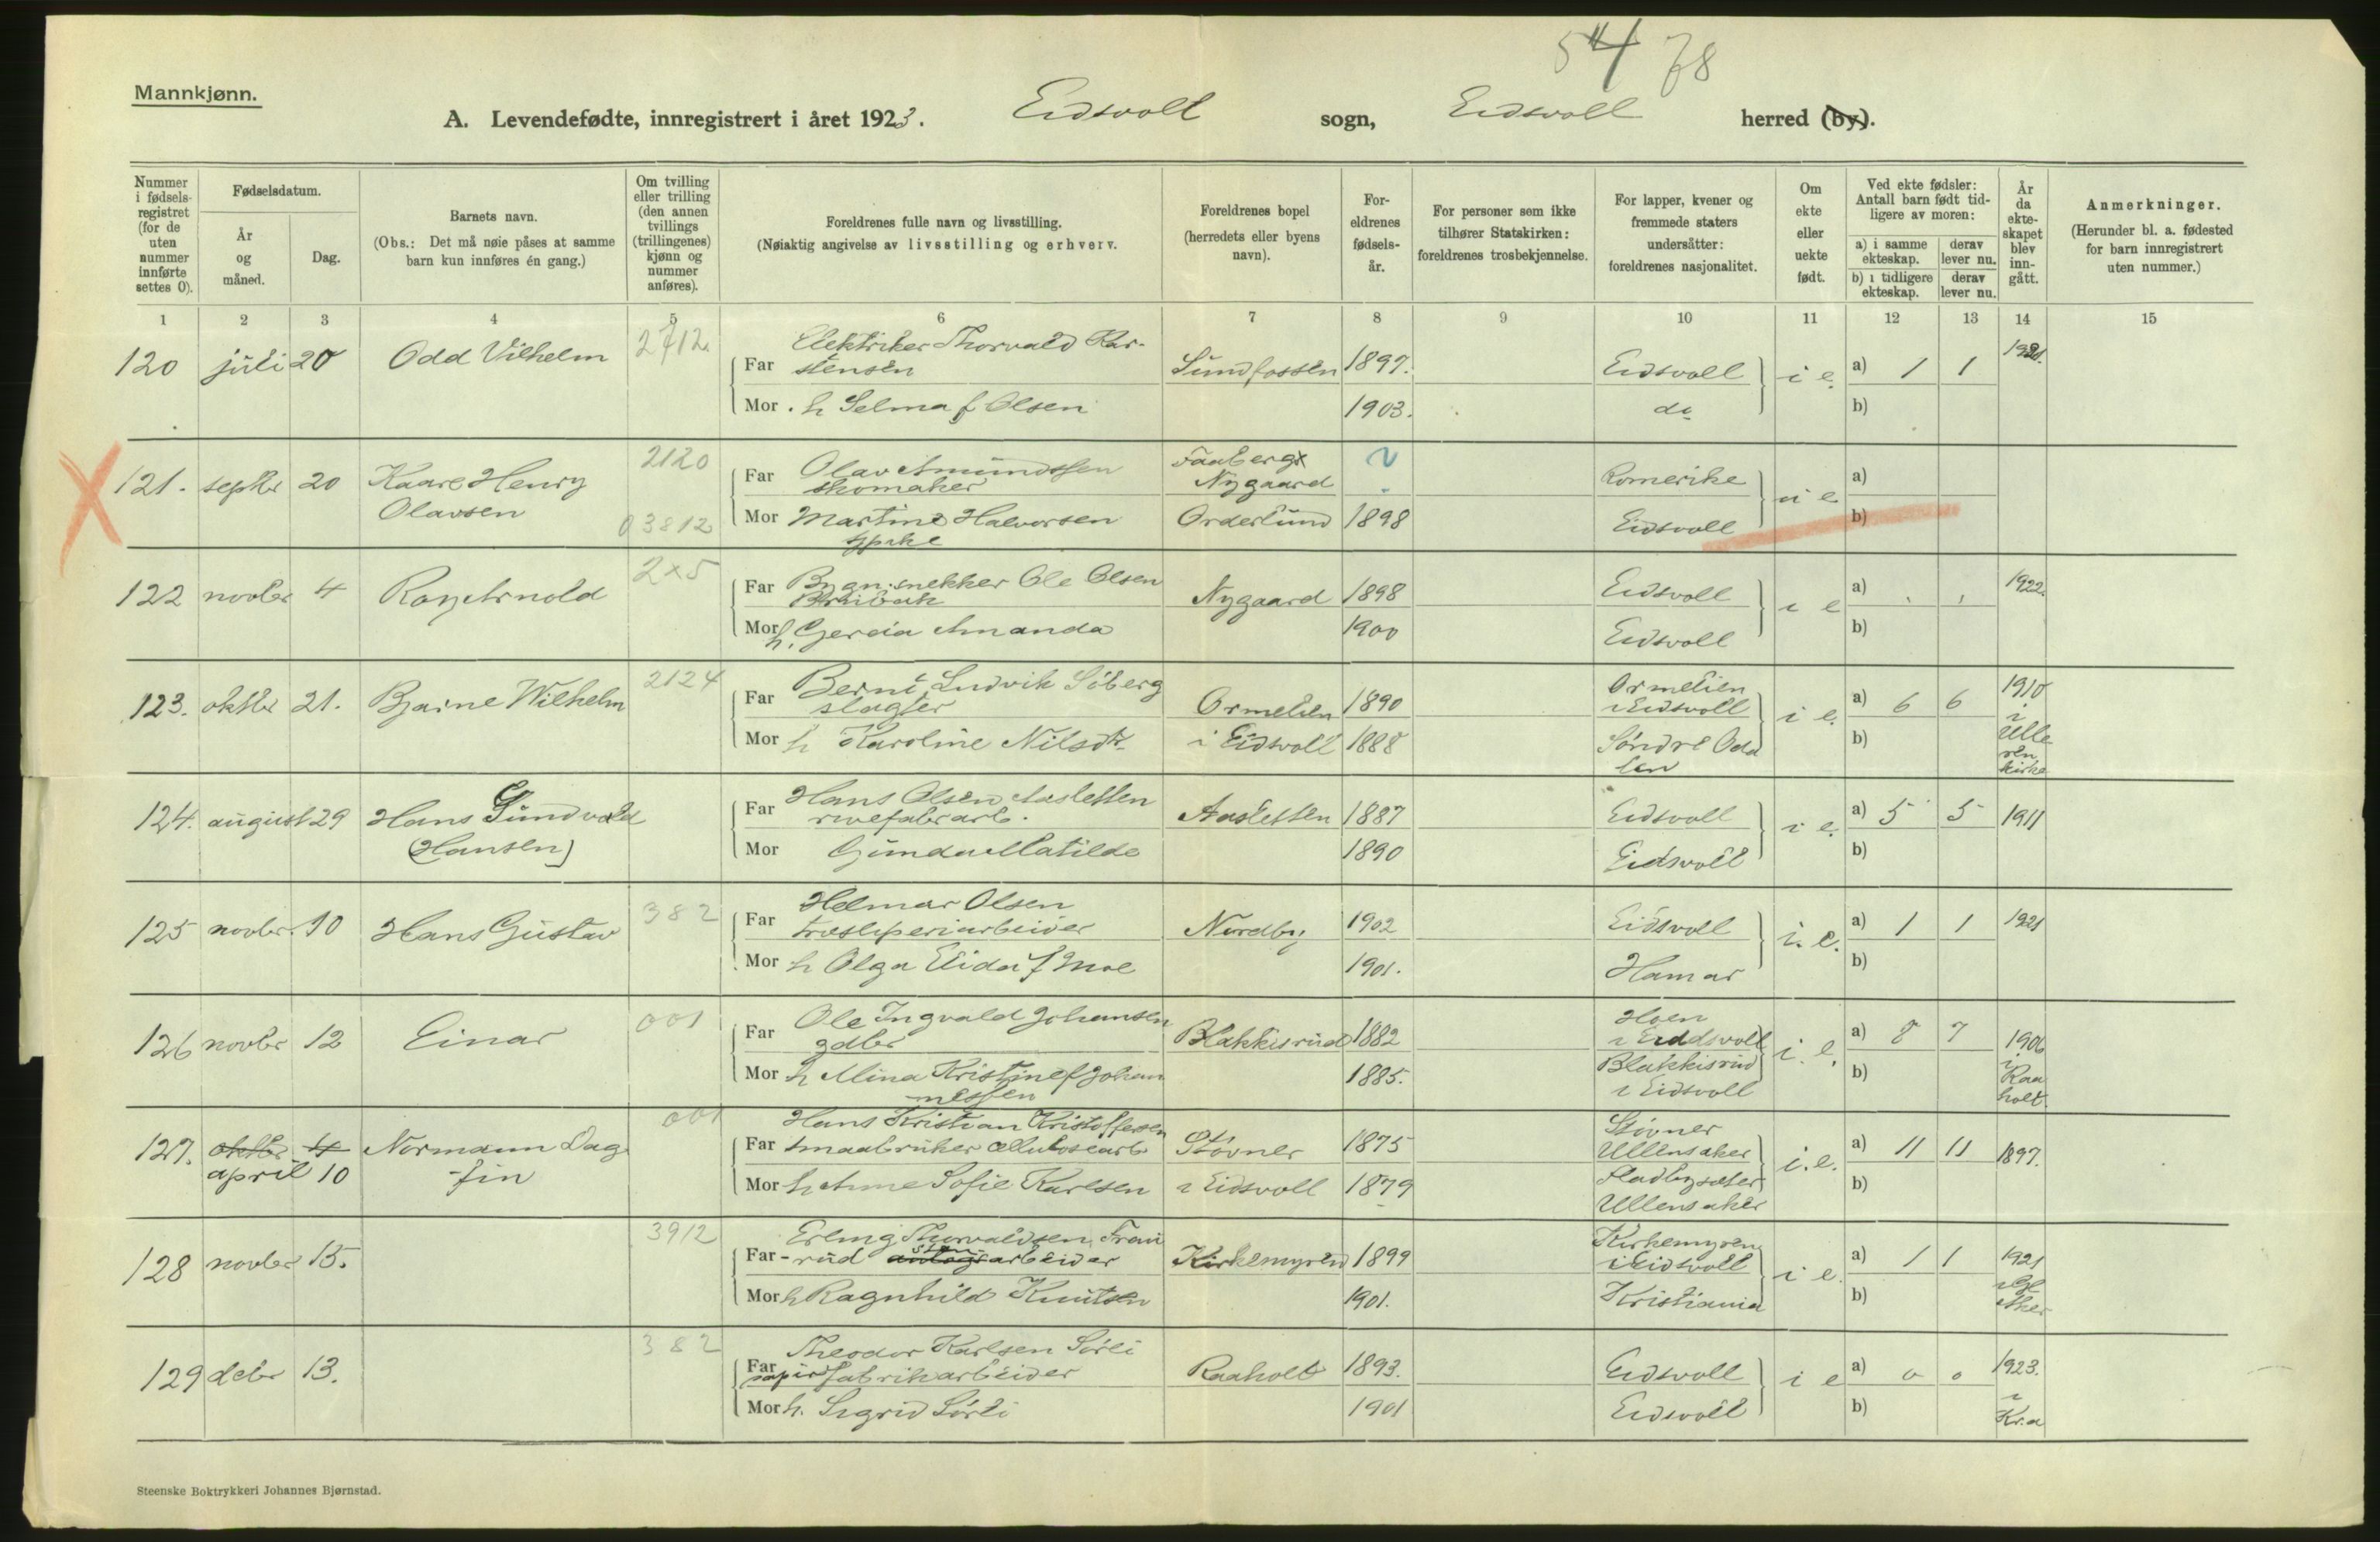 54 78
Mannkjønn.
A. Levendefødte, innregistrert i året 1923. Eidsvoll sogn, Eidsvoll herred (by).
Nummer i fødsels-registret (for de uten nummer innførte settes 0).
Fødselsdatum.
År og måned.
Dag.
Barnets navn.
(Obs.: Det må nøie påses at samme barn kun innføres én gang.)
Om tvilling eller trilling (den annen tvillings (trillingenes) kjønn og nummer anføres).
Foreldrenes fulle navn og livsstilling.
(Nøiaktig angivelse av livsstilling og erhverv.
Foreldrenes bopel (herredets eller byens navn).
For-eldrenes fødsels-år.
For personer som ikke tilhører Statskirken: foreldrenes trosbekjennelse.
For lapper, kvener og fremmede staters undersåtter: foreldrenes nasjonalitet.
Om ekte eller uekte født.
Ved ekte fødsler: Antall barn født tid-ligere av moren:
a) i samme ekteskap. derav lever nu.
b) i tidligere ekteskap. derav lever nu.
År da ekte-skapet blev inn-gått.
Anmerkninger.
(Herunder bl. a. fødested for barn innregistrert uten nummer.)
1 2 3 4 5 6 7 8 9 10 11 12 13 14 15
120 juli 20 Odd Vilhelm 2712.
Far Elektriker Thorvald Kar-
stensen Sundfossen 1897. Eidsvoll i e. a) 1 1
Mor h Selma f Olsen 1903. do b)
X 121. septbr 20 Kaare Henry Olavsen 2120 03812
Far Olav Amundssen
skomaker Faaberg x Nygaard Romerike u e a)
Mor Martine Halvorsen Orderlund 1898 Eidsvoll b)
122 novbr 4 Roy Arnold 2x5
Far Bygn.snekker Ole Olsen
Nygaard 1898 Eidsvoll i e a) 1922.
Mor h. Amanda 1900 Eidsvoll b)
123. oktbr 21. Bjarne Wilhelm 2124
Far Bernt Ludvik Söberg
slagter Ormelien 1890 Ormelien i Eidsvoll i e. a) 6 6 1910
Mor h Karoline Nilsdtr i Eidsvoll 1888 Söndre Odalen b) i Ulleren kirke
124. august 29 Hans Gundvald
(Hansen)
Far Hans Olsen Aasletten
Aasletten 1887 Eidsvoll i e. a) 5 5 1911
Mor Gunda Matilde 1890 Eidsvoll b)
125 novbr. 10 Hans Gustav 382
Far Helmar Olsen
træsliperiarbeider Nordby 1902 Eidsvoll i. e. a) 1 1 1921
Mor h Olga Elida f Moe 1901. Hamar b)
126 novbr 12 Einar 001
Far Ole Ingvald Johansen
gdbr Blakkisrud 1882 Hoen i Eidsvoll i. e. a) 8 7 1906
Mor h Mina Kristine f Johan
nessen 1885. Blakkisrud i Eidsvoll b) i Raaholt.
127. oktbr 4 Normann Dag
april 10 fin 001
Far Hans Kristian Kristoffersen
smaabruker cellulosearb Stövner 1875 Stövner Ullensaker i. e. a) 11 11 1897.
Mor h Anne Sofie Karlsen i Eidsvoll 1879 Ullensaker b)
128 novbr 15. 3912
Far Erling Thorvaldsen
-rud arbeider Kirkemyren 1899 Kirkemyren i Eidsvoll i e. a) 1 1 1921
Mor h Ragnhild Knutsen 1901. Kristiania b)
129 debr 13. 382
Far Theodor Karlsen Sörli
papirfabrikarbeider Raaholt 1893. Eidsvoll i e a) 0 0 1923.
Mor h. Sigrid Sörli 1901 Eidsvoll b) i Kr.a
Steenske Boktrykkeri Johannes Bjørnstad.